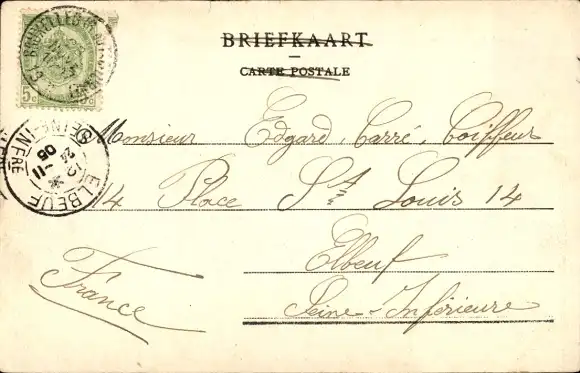 BRIEFKAART
CARTE POSTALE
Monsieur Edgard Carré, Coiffeur
14 Place St Louis 14
Elbeuf
Seine-Inférieure
France
BRUXELLES
5c
ELBEUF
SEINE-INFRE
12 -11
05